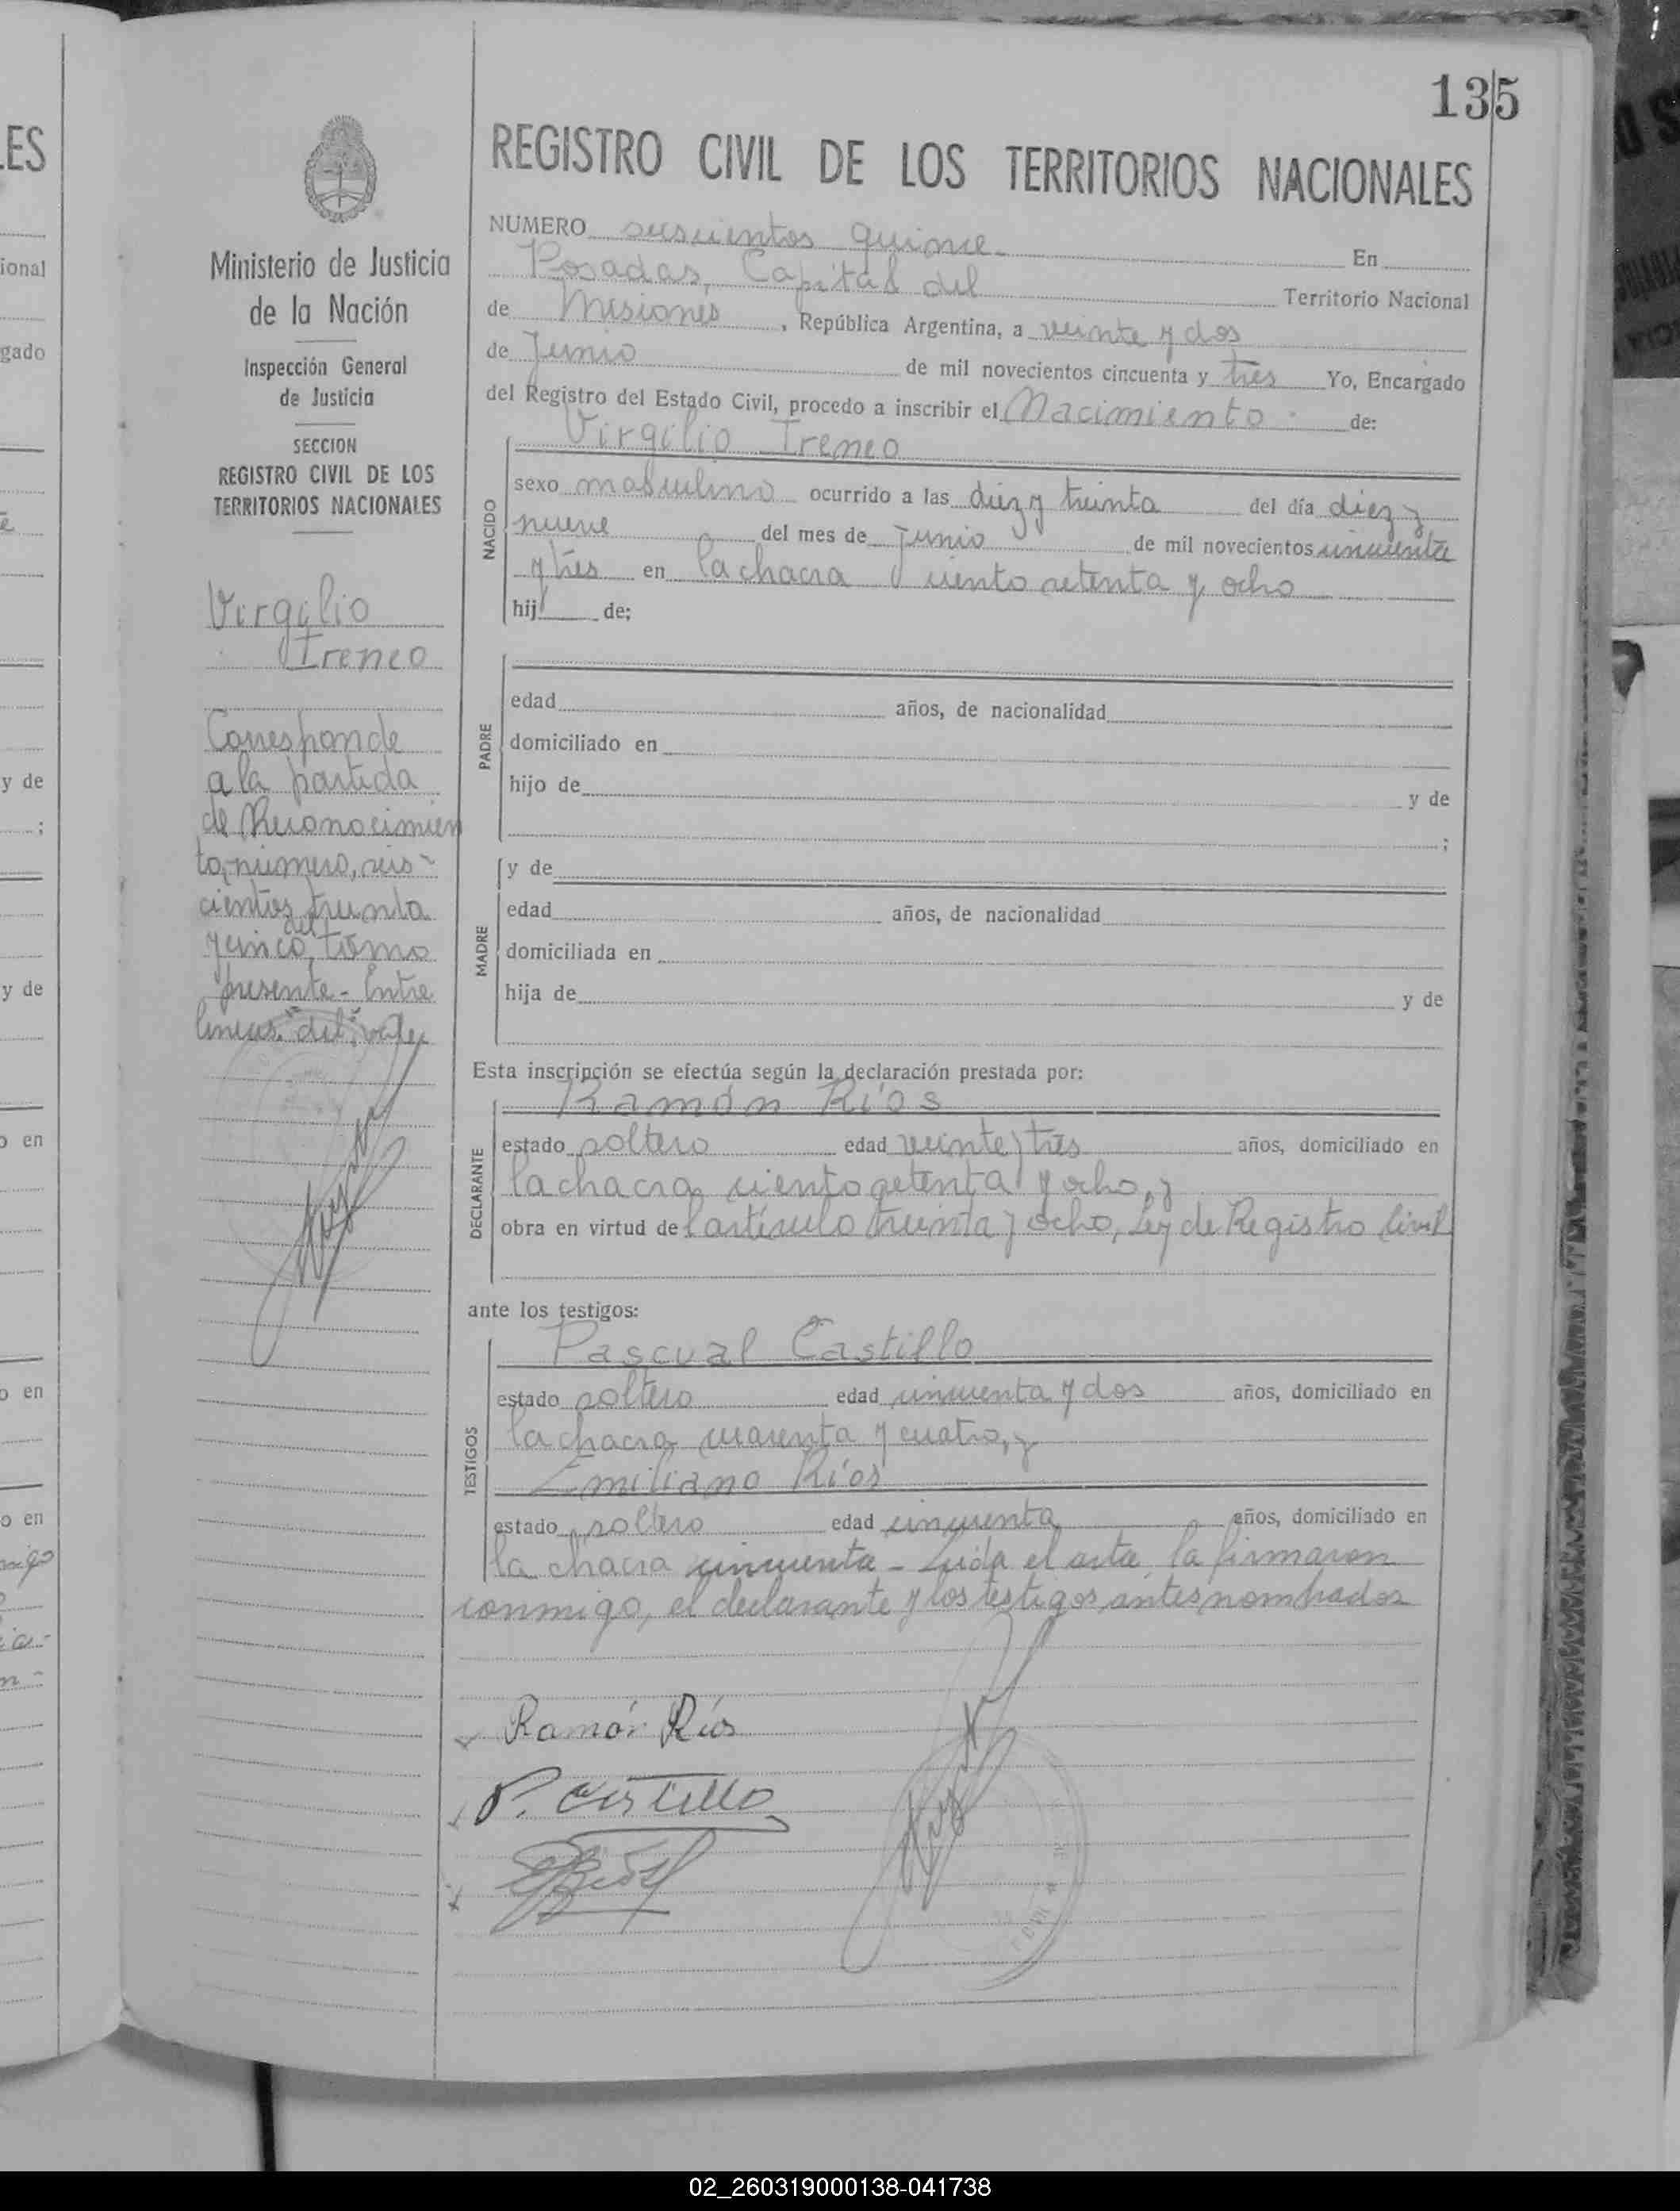 135
REGISTRO CIVIL DE LOS TERRITORIOS NACIONALES
Ministerio de Justicia
de la Nación
Inspección General
de Justicia
SECCION
REGISTRO CIVIL DE LOS
TERRITORIOS NACIONALES
Virgilio
Ireneo
Corresponde
a la partida
de Reconocimien
to, número, seis-
cientos treinta
del
y cinco, tomo
presente - Entre
lineas "del" vale
NUMERO seiscientos quince. En
Posadas, Capital del Territorio Nacional
de Misiones, República Argentina, a veinte y dos
de Junio de mil novecientos cincuenta y tres Yo, Encargado
del Registro del Estado Civil, procedo a inscribir el Nacimiento de:
Virgilio Ireneo
NACIDO
sexo masculino ocurrido a las diez y treinta del día diez y
nueve del mes de Junio de mil novecientos cincuenta
y tres en la chacra ciento setenta y ocho
hij de;
PADRE
edad años, de nacionalidad
domiciliado en
hijo de y de
;
y de
MADRE
edad años, de nacionalidad
domiciliada en
hija de y de
Esta inscripción se efectúa según la declaración prestada por:
Ramón Ríos
DECLARANTE
estado soltero edad veinte y tres años, domiciliado en
la chacra ciento setenta y ocho, y
obra en virtud del artículo treinta y ocho, Ley de Registro Civil
ante los testigos:
Pascual Castillo
TESTIGOS
estado soltero edad cincuenta y dos años, domiciliado en
la chacra cuarenta y cuatro, y
Emiliano Ríos
estado soltero edad cincuenta años, domiciliado en
la chacra cincuenta - Leída el acta la firmaron
conmigo, el declarante y los testigos antes nombrados
Ramón Ríos
P. Castillo
02_260319000138-041738